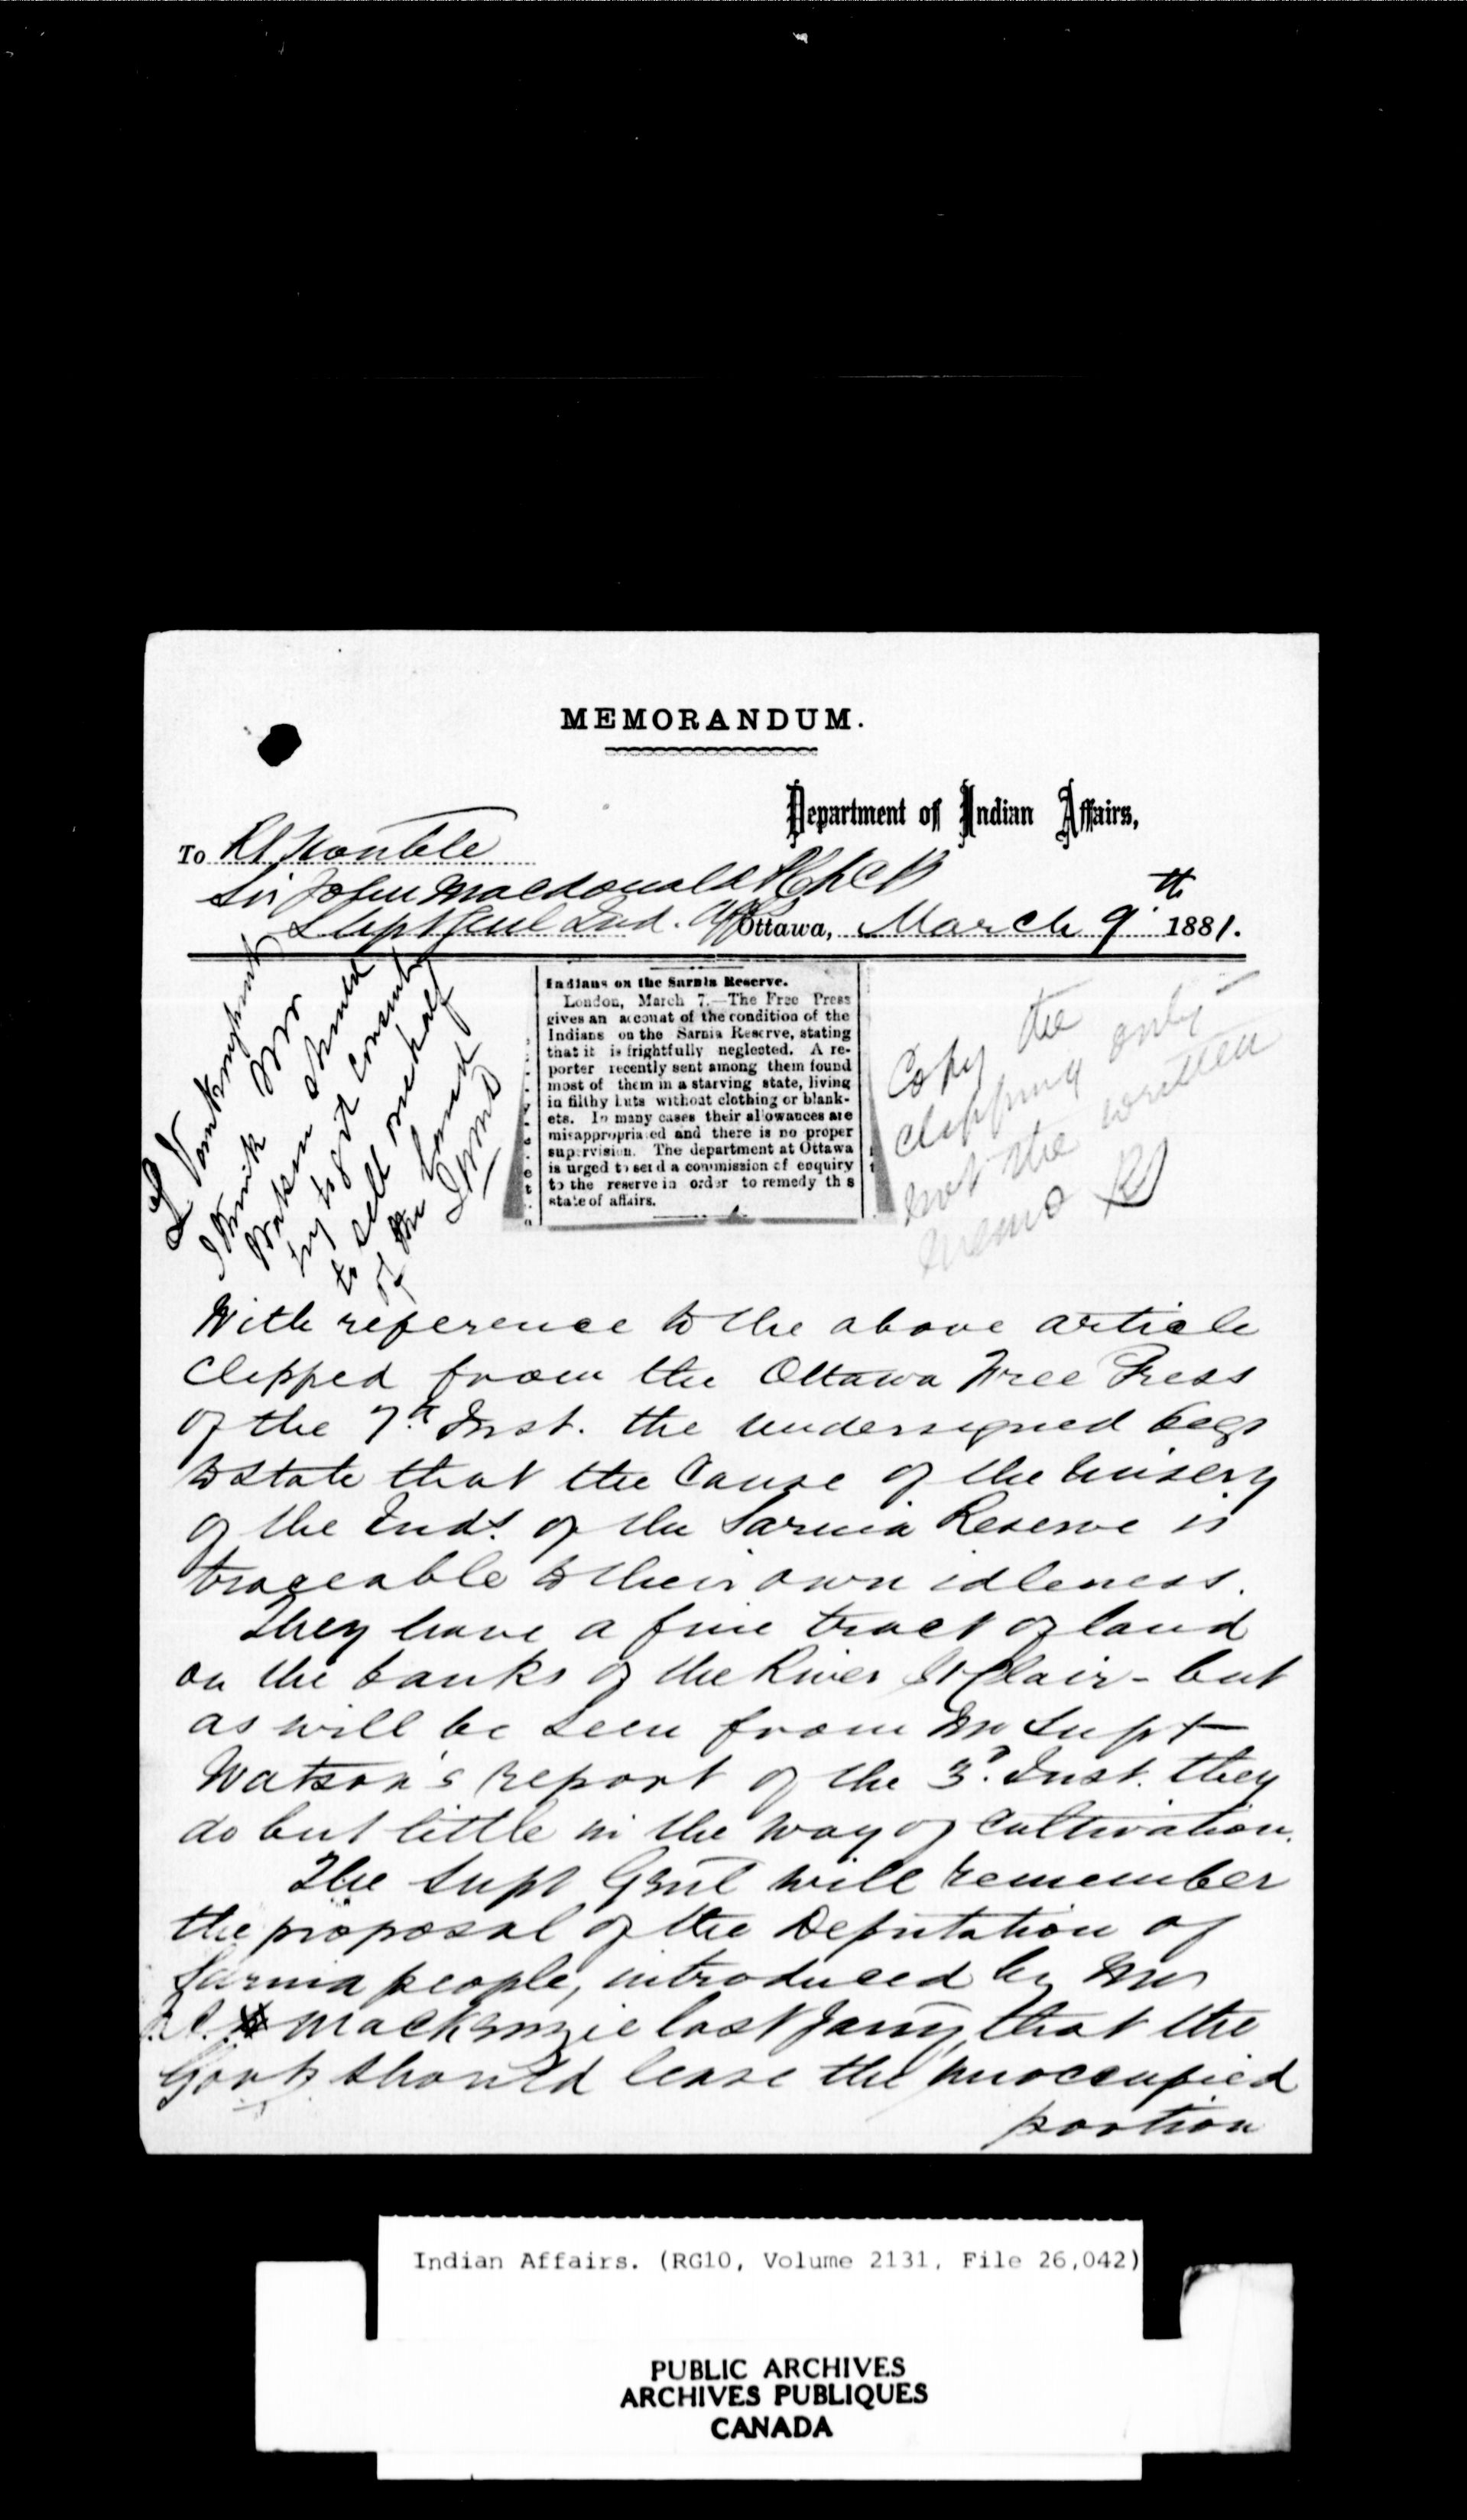 MEMORANDUM.
Department of Indian Affairs,
To Rt Honble
Sir John Macdonald KCB
Supt Genl Ind. Affs
Ottawa, March 9th 1881.
L Vankoughnet
I think Mr
Watson should
try to get consent
to sell one half
of the land
JAMD
Indians on the Sarnia Reserve.
London, March 7.—The Free Press
gives an account of the condition of the
Indians on the Sarnia Reserve, stating
that it is frightfully neglected. A re-
porter recently sent among them found
most of them in a starving state, living
in filthy huts without clothing or blank-
ets. In many cases their allowances are
misappropriated and there is no proper
supervision. The department at Ottawa
is urged to send a commission of enquiry
to the reserve in order to remedy this
state of affairs.
Copy the
clipping only—
not the written
memo
With reference to the above article
clipped from the Ottawa Free Press
of the 7th Inst. the undersigned begs
to state that the cause of the misery
of the Inds. of the Sarnia Reserve is
traceable to their own idleness.
They have a fine tract of land
on the banks of the River St Clair - but
as will be seen from Mr Supt
Watson's report of the 3d. Inst. they
do but little in the way of cultivation.
The Supt Genl will remember
the proposal of the Deputation of
Sarnia people, introduced by Mr
Mackenzie last Jany, that the
Govt should lease the unoccupied
portion
Indian Affairs. (RG10, Volume 2131, File 26,042)
PUBLIC ARCHIVES
ARCHIVES PUBLIQUES
CANADA